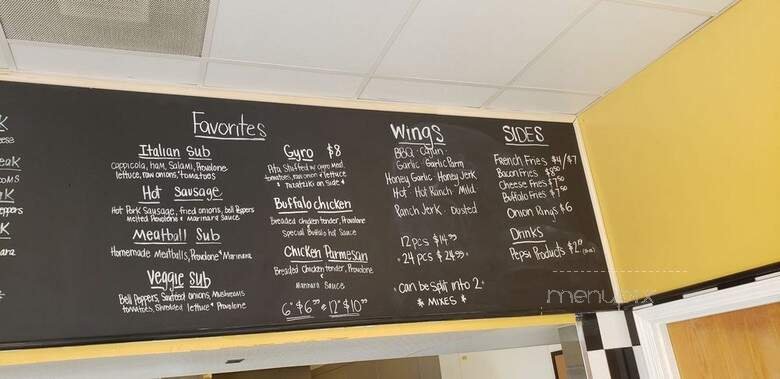 Favorites
Italian Sub
cappicola, ham, Salami, Provolone
lettuce, raw onions, tomatoes
Hot Sausage
Hot Pork Sausage, fried onions, bell Peppers
melted Provolone & Marinara Sauce
Meatball Sub
Homemade Meatballs, Provolone & Marinara
Veggie Sub
Bell Peppers, Sauteed onions, Mushrooms
tomatoes, Shredded lettuce & Provolone
Gyro $8
Pita Stuffed w/ gyro meat,
tomatoes, raw onion & lettuce
& Tzatziki on Side &
Buffalo chicken
Breaded chicken tender, Provolone
Special Buffalo hot Sauce
Chicken Parmesan
Breaded Chicken tender, Provolone
&
Marinara Sauce
6" $6.99 & 12" $10.99
Wings
BBQ · Cajun ·
Garlic · Garlic Parm
Honey Garlic · Honey Jerk
Hot · Hot Ranch · Mild
Ranch Jerk · Dusted
12 pcs $14.99
24 pcs $24.99
· can be split into 2 ·
* MIXES *
SIDES
French Fries $4/$7
Bacon Fries $8.50
Cheese Fries $7.50
Buffalo Fries $7.50
Onion Rings $6
Drinks
Pepsi Products
menupix